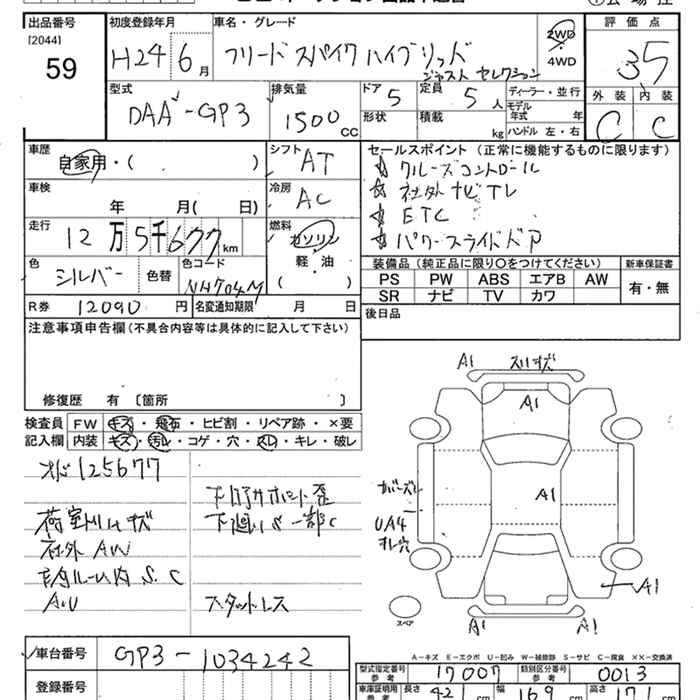 出品番号
[2044]
59
初度登録年月
H24 6月
車名・グレード
フリード スパイク ハイブリッド
ジャスト セレクション
2WD
4WD
評価点
3.5
外装 内装
C C
型式
DAA-GP3
排気量
1500cc
ドア
5
定員
5人
ディーラー・並行
モデル
年式 年
ハンドル 左・右
形状
積載
kg
車歴
自家用・( )
シフト
AT
車検
年 月( 日)
冷房
AC
走行
12万5千677km
燃料
ガソリン
軽・油
( )
色
シルバー
色替
色コード
NH704M
R券 12090円
名変通知期限 月 日
セールスポイント (正常に機能するものに限ります)
☆ クルーズコントロール
☆ 社外ナビTV
☆ ETC
☆ パワースライドドア
装備品 (純正品に限り○をつけてください)
新車保証書
PS PW ABS エアB AW
SR ナビ TV カワ
有・無
後日品
注意事項申告欄 (不具合内容等は具体的に記入して下さい)
修復歴 有 〔箇所 〕
検査員
記入欄
FW キズ・飛石・ヒビ割・リペア跡・×要
内装 キズ・汚レ・コゲ・穴・スレ・キレ・破レ
125677
荷室トリムキズ
社外AW
S.C
下廻り 一部C
スタットレス
A1 スリキズ
A1
A1
A1
A1
A1
UA4
スペア
A-キズ E-エクボ U-凹み W-補修跡 S-サビ C-腐食 ××-交換済
車台番号
GP3-1034242
登録番号
型式指定番号
参考
17007
類別区分番号
参考
0013
車庫証明用
参考
長さ 421cm
幅 169cm
高さ 171cm